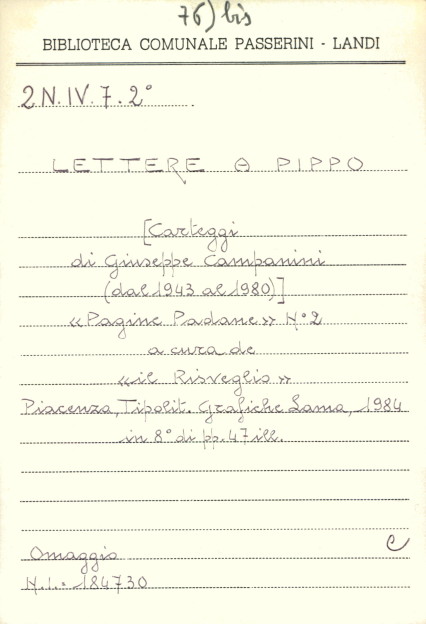 76) bis
BIBLIOTECA COMUNALE PASSERINI - LANDI
2N.IV.7.2°
LETTERE A PIPPO
[Carteggi
di Giuseppe Campanini
(dal 1943 al 1980)]
«Pagine Padane» N°2
a cura de
«il Risveglio»
Piacenza, Tipolit. Grafiche Lama, 1984
in 8° di pp. 47 ill.
C
Omaggio
N.I. = 184730